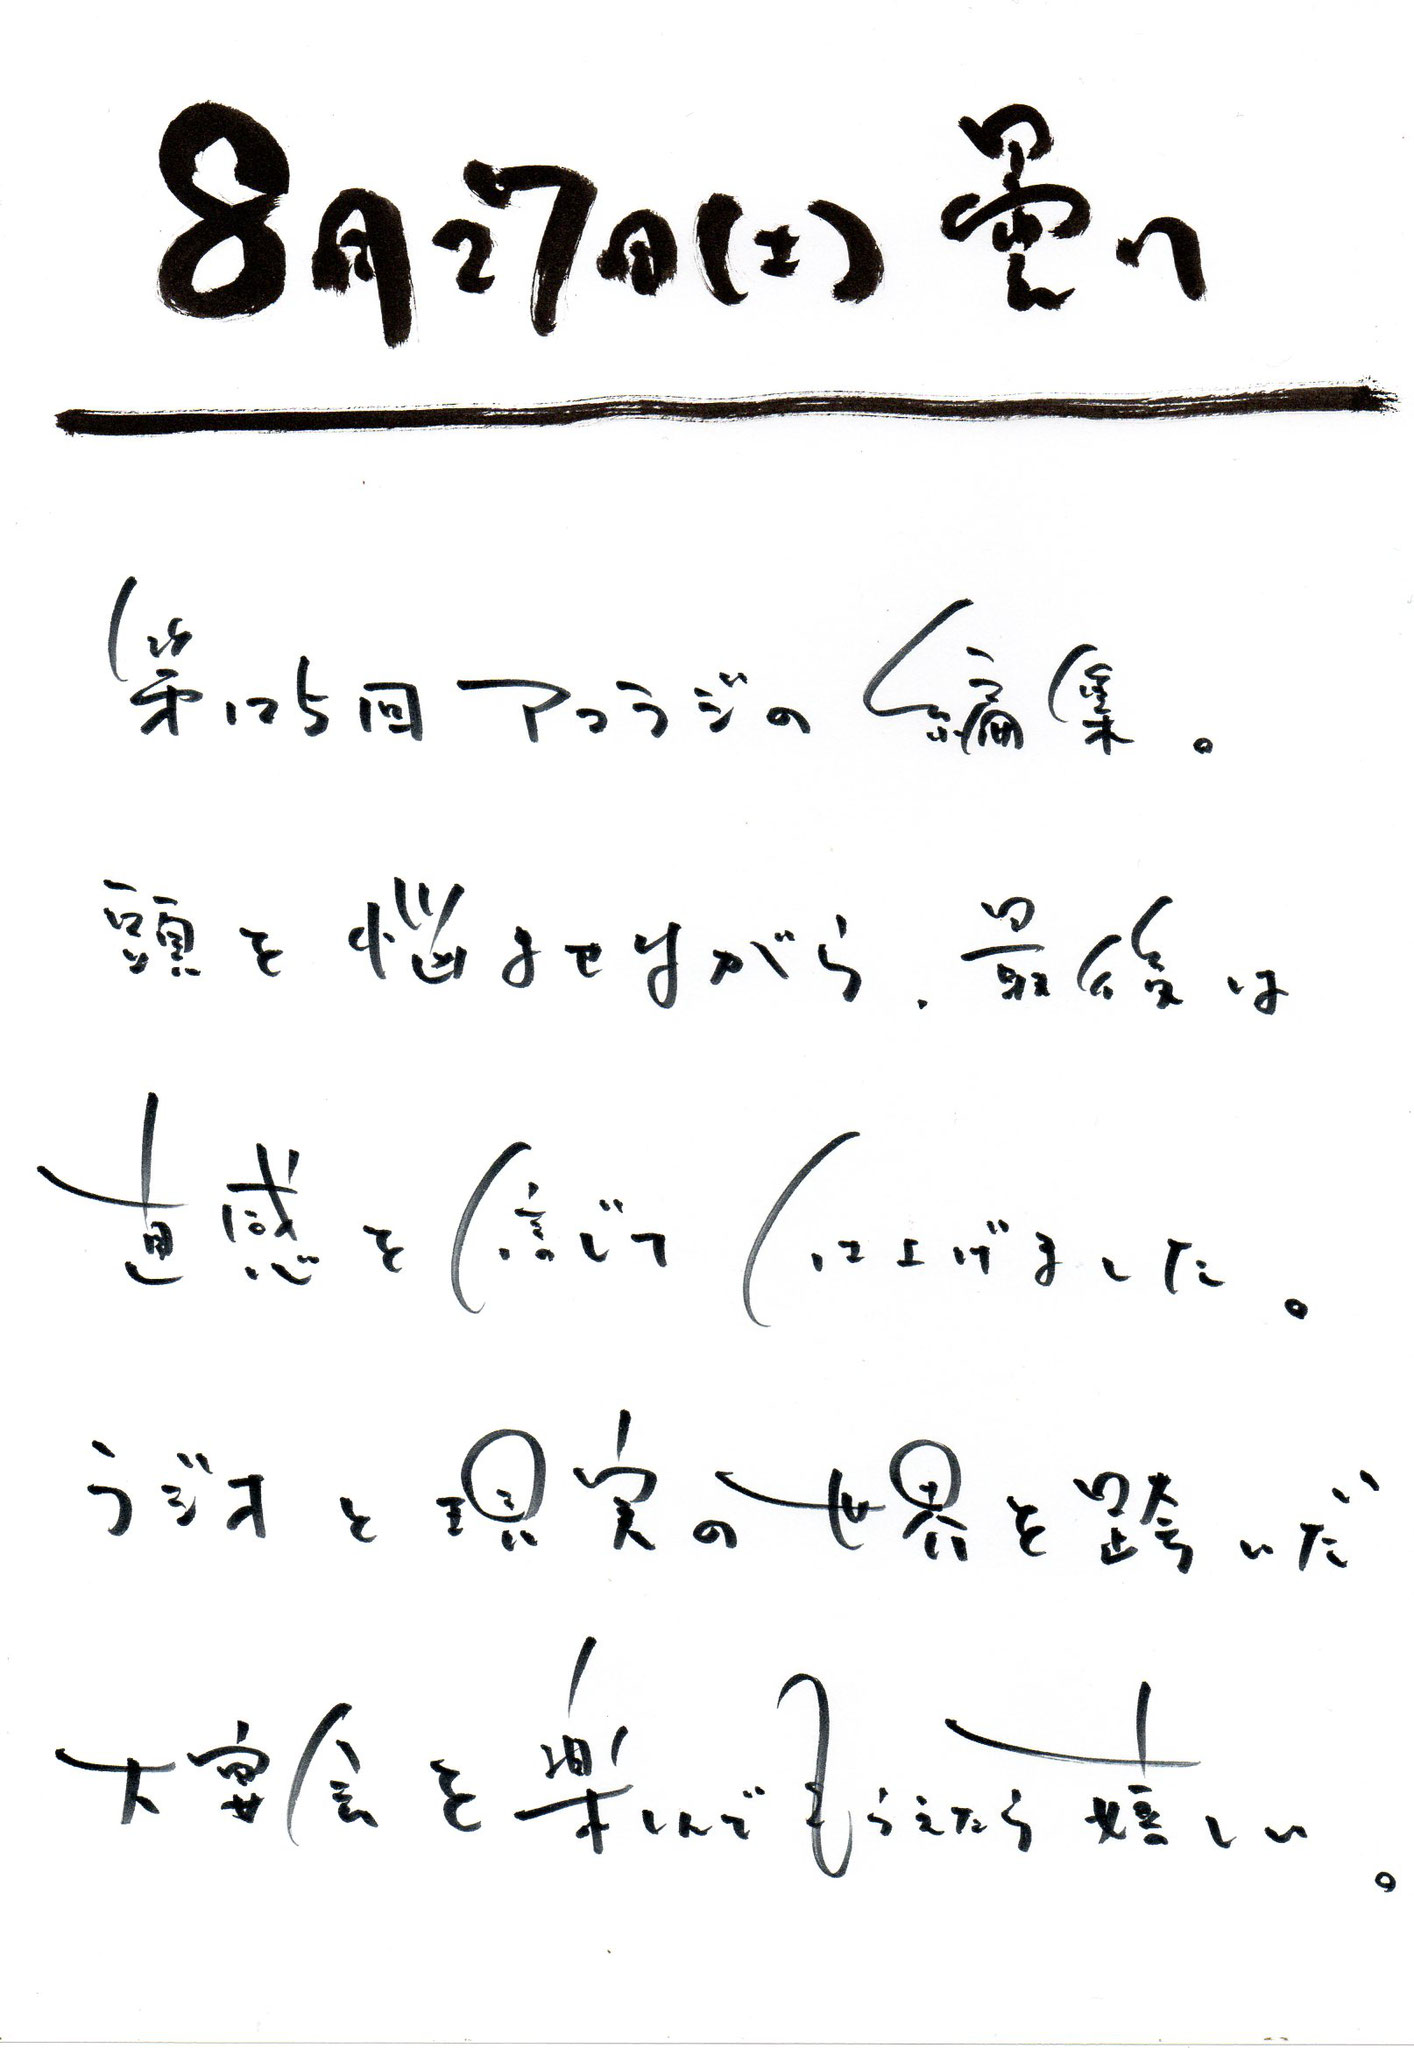 8月27日(土) 曇り
第125回アコラジの編集。
頭を悩ませながら、最後は
直感を信じて仕上げました。
ラジオと現実の世界を跨いだ
大宴会を楽しんでもらえたら嬉しい。